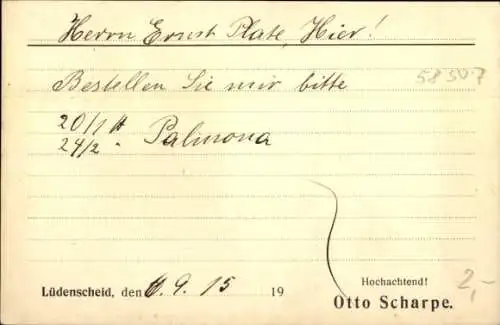 Herrn Ernst Plate, Hier!
Bestellen Sie mir bitte
58 50 7
20/1 ℔
24/2 " Palmona
Hochachtend!
2,-
Lüdenscheid, den 9. 15 19
Otto Scharpe.